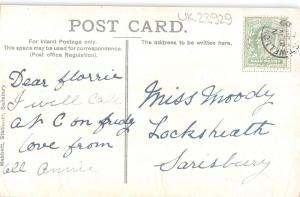 UK-23929
POST CARD.
For Inland Postage only.
This space may be used for correspondence.
(Post office Regulation).
The address to be written here.
Dear Florrie
I will Call
at C on fridy
love from
all Annie
Miss Moody
Locksheath
Sarisbury